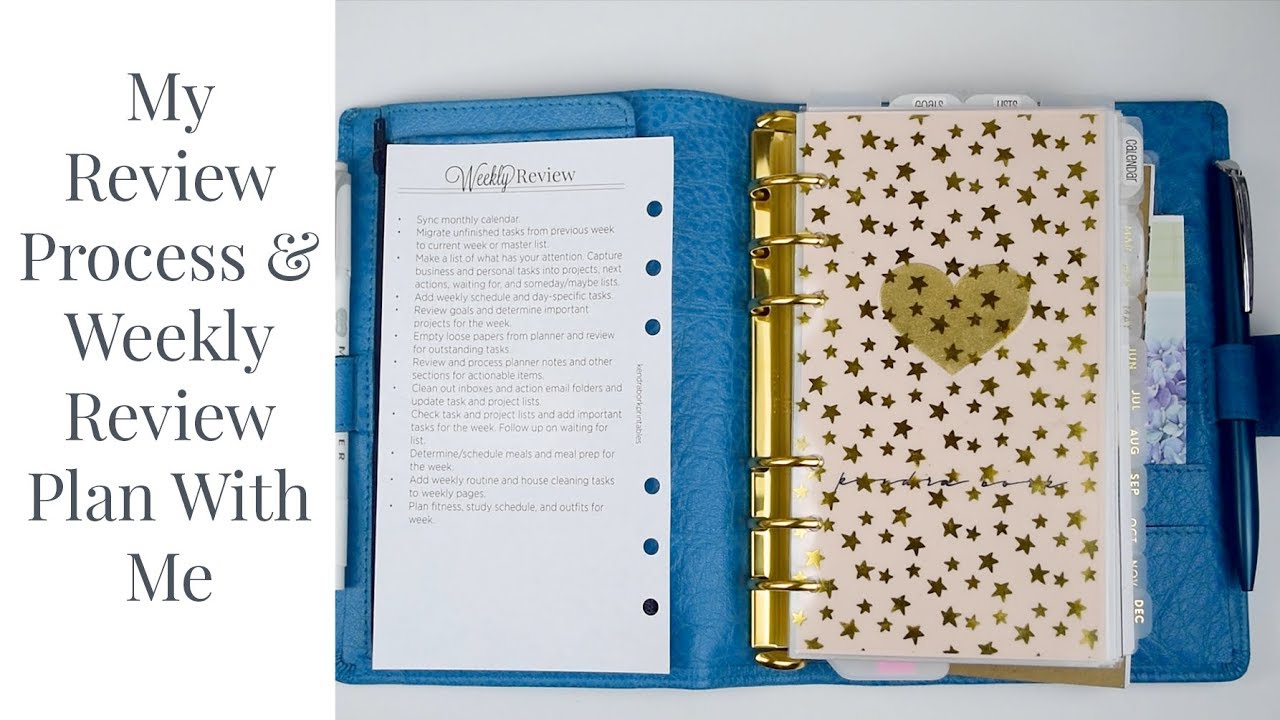 My
Review
Process &
Weekly
Review
Plan With
Me
Weekly Review
• Sync monthly calendar.
• Migrate unfinished tasks from previous week
to current week or master list.
• Make a list of what has your attention. Capture
business and personal tasks into projects, next
actions, waiting for, and someday/maybe lists.
• Add weekly schedule and day-specific tasks.
• Review goals and determine important
projects for the week.
• Empty loose papers from planner and review
for outstanding tasks.
• Review and process planner notes and other
sections for actionable items.
• Clean out inboxes and action email folders and
update task and project lists.
• Check task and project lists and add important
tasks for the week. Follow up on waiting for
list.
• Determine/schedule meals and meal prep for
the week.
• Add weekly routine and house cleaning tasks
to weekly pages.
• Plan fitness, study schedule, and outfits for
week.
kendraborkprintables
GOALS
LISTS
calendar
MAR
MAY
JUN
JUL
AUG
SEP
OCT
NOV
DEC
kendra bork